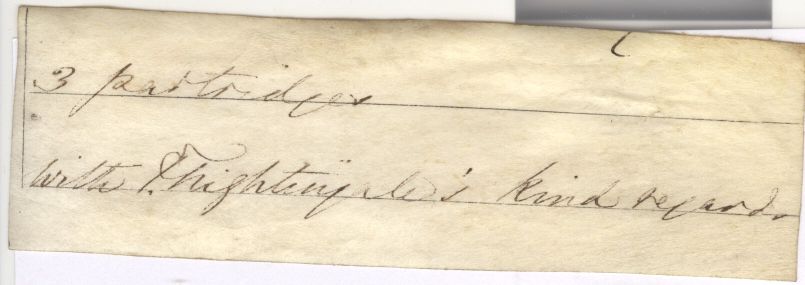 3 partridges
with F. Nightingale's kind regards